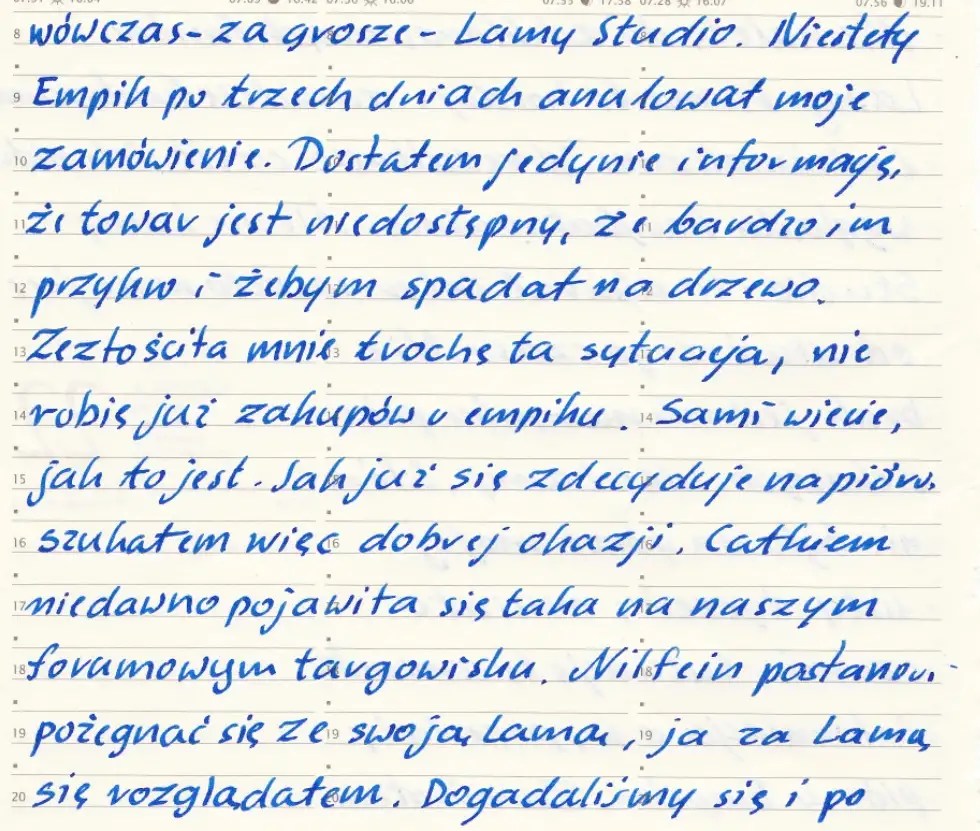 wówczas - za grosze - Lamy Studio. Niestety
Empik po trzech dniach anulował moje
zamówienie. Dostałem jedynie informację,
że towar jest niedostępny, że bardzo im
przykro i żebym spadał na drzewo.
Zezłościła mnie trochę ta sytuacja, nie
robię już zakupów w empiku. Sami wiecie,
jak to jest. Jak już się zdecyduję na pióro,
szukałem więc dobrej okazji. Całkiem
niedawno pojawiła się taka na naszym
forumowym targowisku. Nilfein postanowi
pożegnać się ze swoją Lamą, ja za Lamą
się rozglądałem. Dogadaliśmy się i po